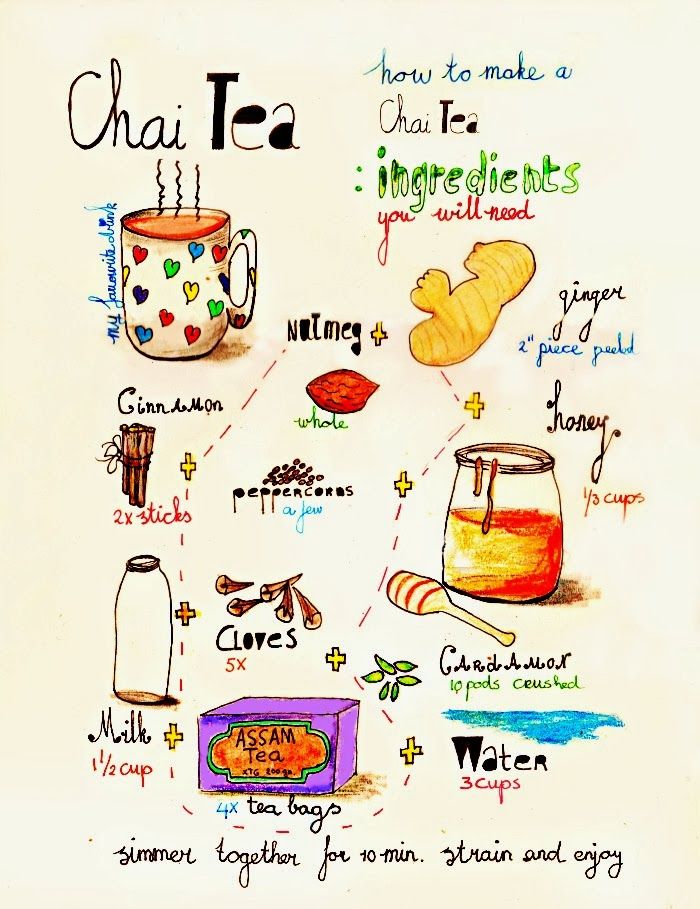 Chai Tea
how to make a
Chai Tea
: ingredients
you will need
my favourite drink
Nutmeg +
whole
ginger
2" piece peeled
+
honey
1/3 cups
Cinnamon
2x sticks
+
peppercorns
a few
+
+
Cloves
5x
+
Cardamon
10 pods crushed
Milk
1 1/2 cup
+
ASSAM
Tea
XTG 200 gr
4x tea bags
+
Water
3 cups
simmer together for 10 min. strain and enjoy